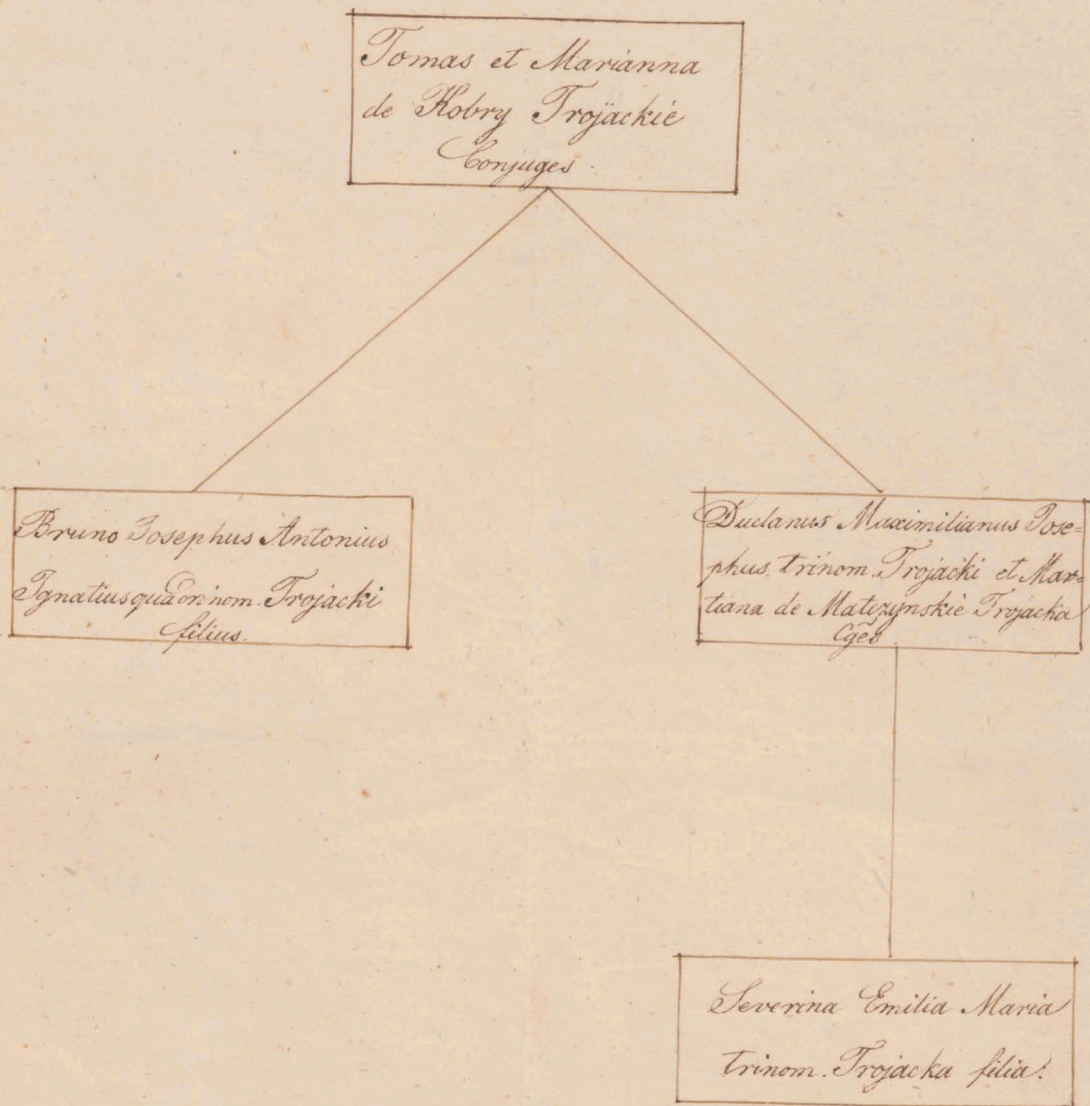 Tomas et Marianna
de Kobry Trojackie
Conjuges.
Bruno Josephus Antonius
Ignatius quadrinom. Trojacki
filius.
Duclanus Maximilianus Jose=
phus. trinom. Trojacki et Mar=
tiana de Matczynskie Trojacka
Cges
Severina Emilia Maria
trinom. Trojacka filia.